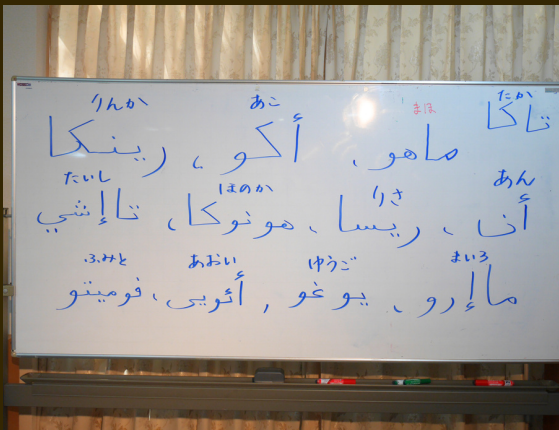 たか
تاكا
りんか あこ まほ
ماهو، أكو، رينكا
たいし ほのか りさ あん
أن، ريسا، هونوكا، تاإشي
ふみと あおい ゆうご まいろ
ماإرو، يوغو، أئويى، فوميتو